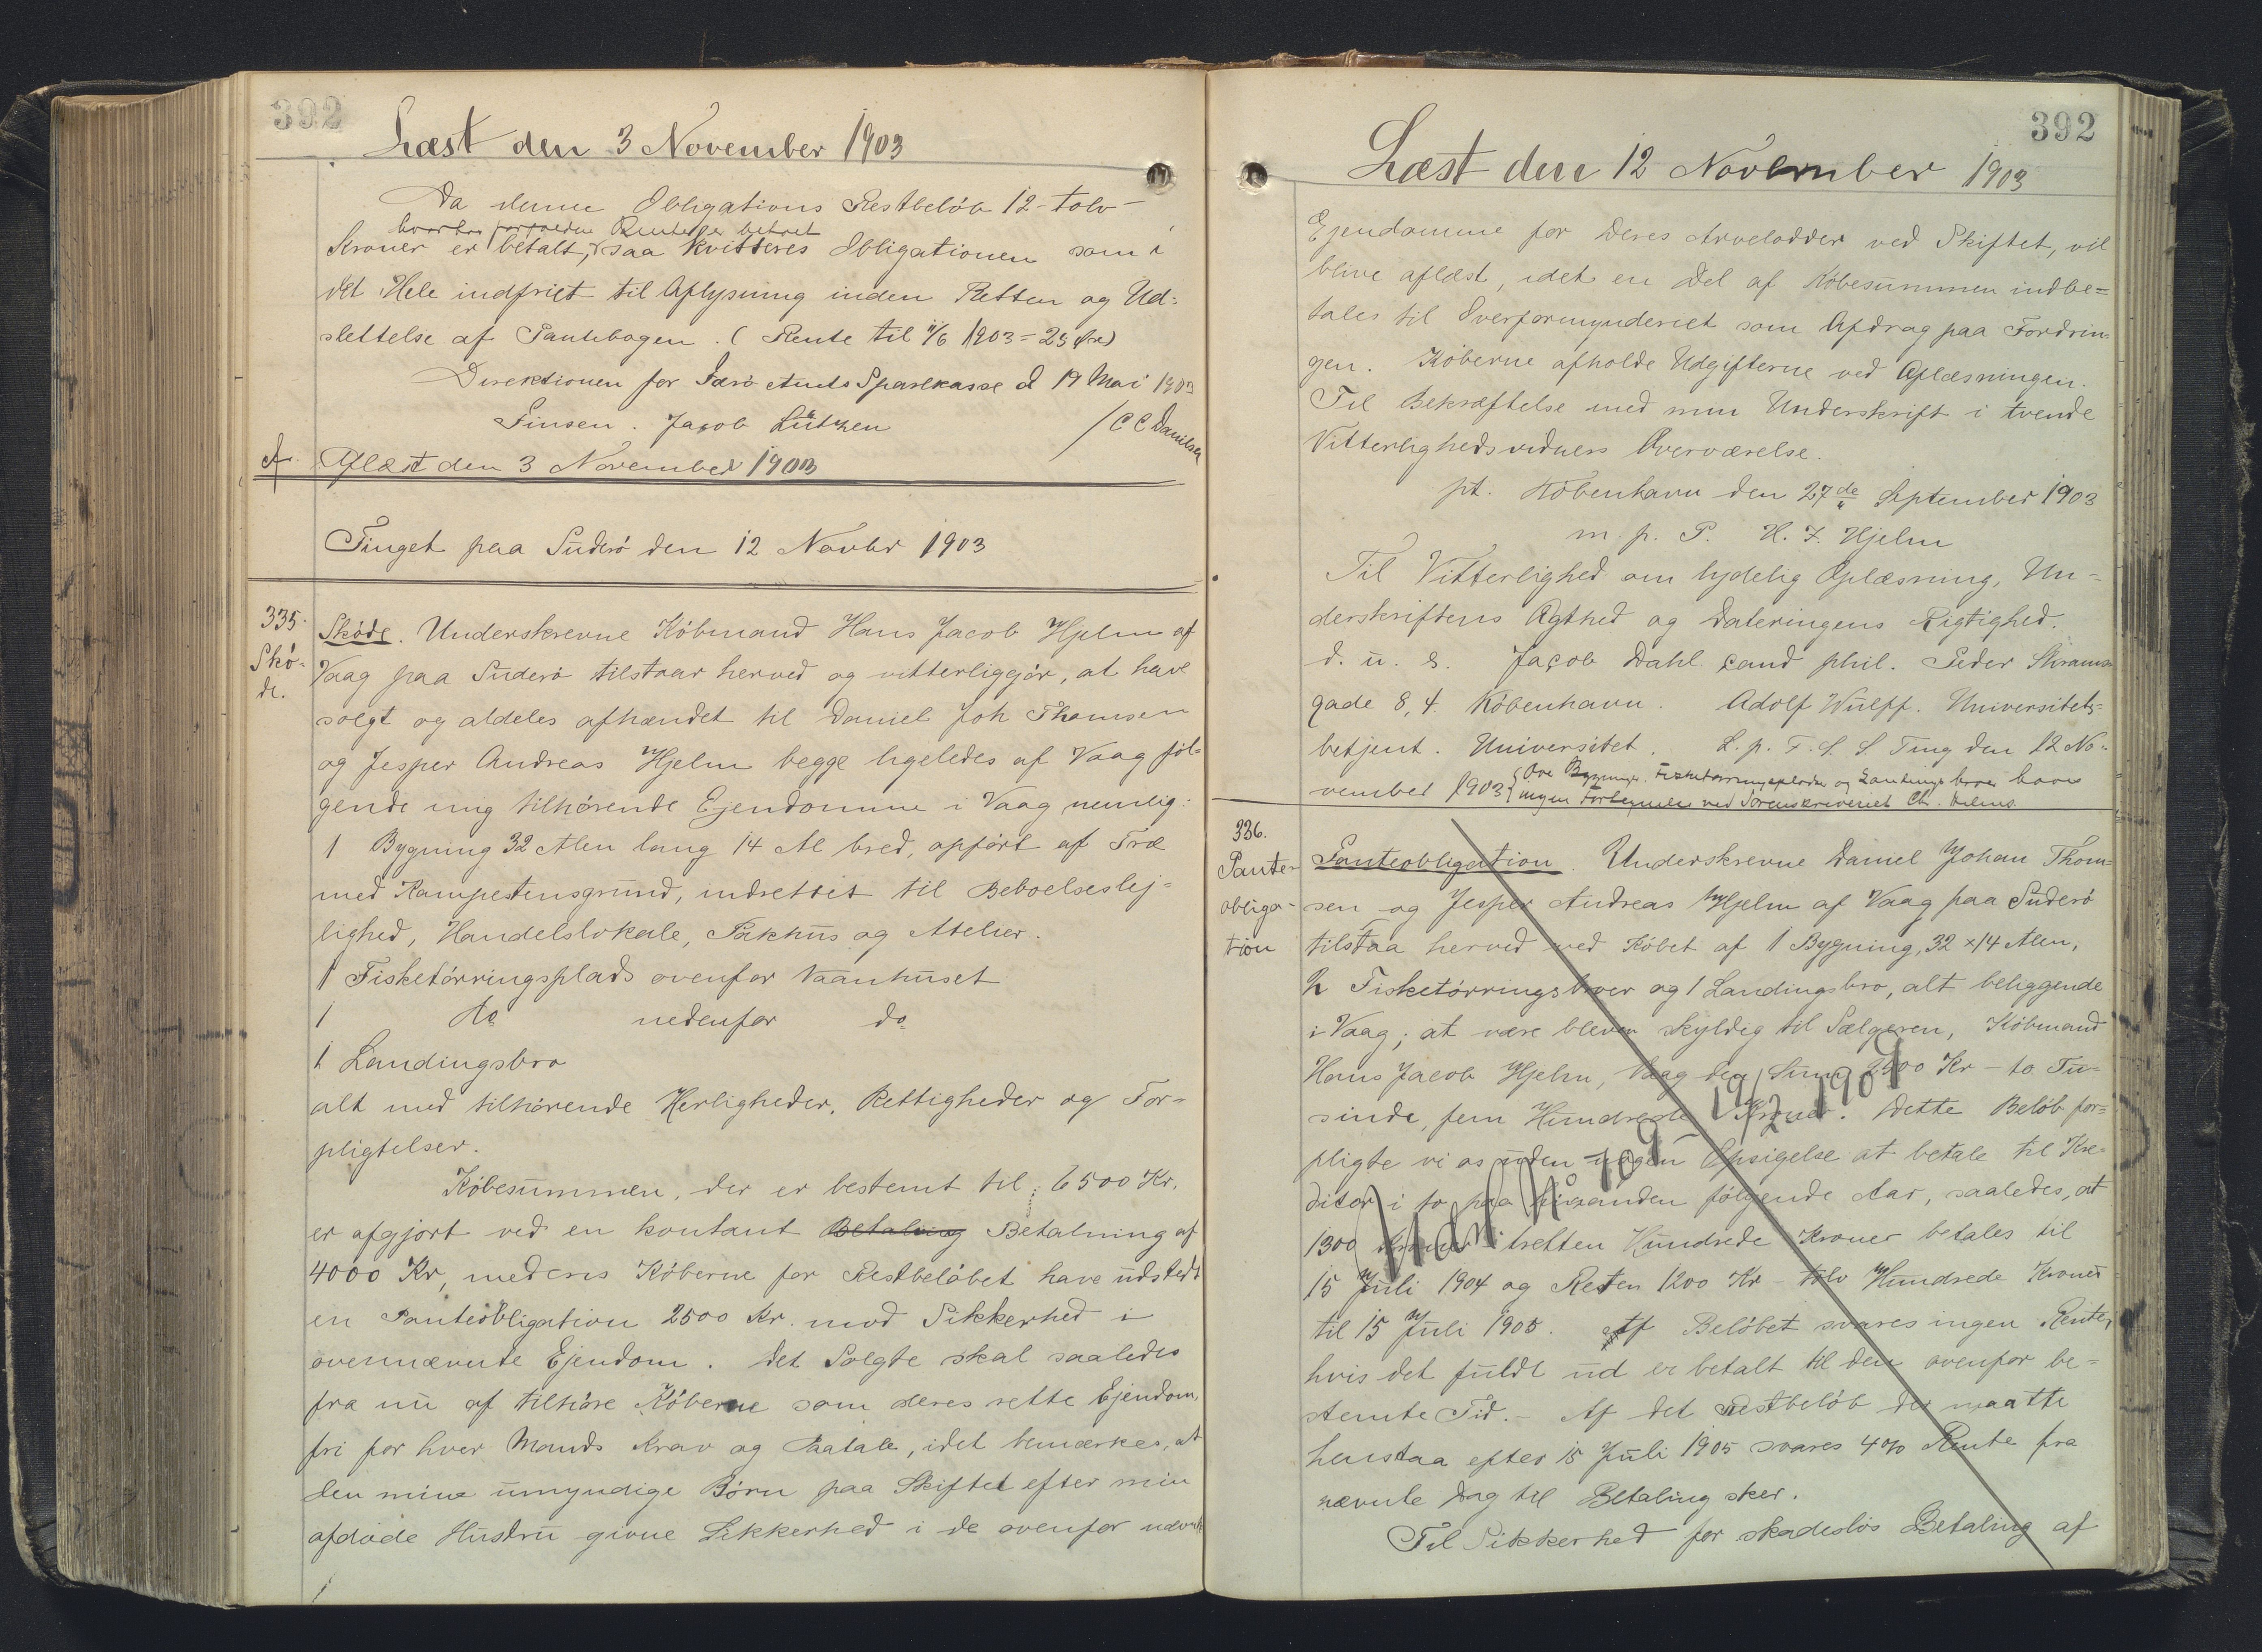 392
Læst den 3 November 1903
Da denne Obligations Restbeløb 12 - tolv -
hvorhos forfaldne Renter er betalt
Kroner er betalt, saa kvitteres Obligationen som i
det Hele indfriet til Aflysning inden Retten og Ud-
slettelse af Pantebogen. (Rente til 11/6 1903 = 25 Øre)
Direktionen for Færø Amts Sparekasse d 19 Mai 1903
Finsen. Jacob Lützen /C C Danielsen
Aflæst den 3 November 1903
Tinget paa Suderø den 12 Novbr 1903
335.
Skø-
de.
Skøde. Underskrevne Købmand Hans Jacob Hjelm af
Vaag paa Suderø tilstaar herved og vitterliggjør, at have
solgt og aldeles afhændet til Daniel Joh Thomsen
og Jesper Andreas Hjelm begge ligeledes af Vaag føl-
gende mig tilhørende Ejendomme i Vaag nemlig:
1 Bygning 32 Alen lang 14 Al bred, opført af Træ
med Kampestensgrund, indrettet til Beboelseslej-
lighed, Handelslokale, Pakhus og Atelier.
1 Fisketørringsplads ovenfor Vaanhuset
1 do nedenfor do
1 Landingsbro
alt med tilhørende Herligheder, Rettigheder og For-
pligtelser.
Købesummen, der er bestemt til 6500 Kr.
er afgjort ved en kontant Betaling Betalning af
4000 Kr, medens Køberne for Restbeløbet have udstedt
en Panteobligation 2500 Kr. mod Sikkerhed i
ovennævnte Ejendom. Det Solgte skal saaledes
fra nu af tilhøre Køberne som deres rette Ejendom,
fri for hver Mands Krav og Paatale, idet bemærkes, at
den mine umyndige Børn paa Skiftet efter min
afdøde Hustru givne Sikkerhed i de ovenfor nævnte
392
Læst den 12 November 1903
Ejendomme for Deres Arvelodder ved Skiftet, vil
blive aflæst, idet en Del af Købesummen indbe-
tales til Overformynderiet som Afdrag paa Fordrin-
gen. Køberne afholde Udgifterne ved Aflæsningen.
Til Bekræftelse med min Underskrift i tvende
Vitterlighedsvidners Overværelse.
pt. København den 27de September 1903
m. p. P. H. J. Hjelm
Til Vitterlighed om lydelig Oplæsning, Un-
derskriftens Ægthed og Dateringens Rigtighed.
d. u. s. Jacob Dahl cand phil. Peder Skrams
gade 8, 4. København. Adolf Wulff. Universitets-
betjent. Universitet. L. p. F. S. S. Ting den 12 No-
vember 1903 { Bygninger, Fisketørringspladser og Landingsbroer have
ingen ved Sorenskriveriet
336.
Pante-
obliga-
tion
Panteobligation. Underskrevne Daniel Johan Thom-
sen og Jesper Andreas Hjelm af Vaag paa Suderø
tilstaa herved ved Købet af 1 Bygning, 32 x 14 Alen,
2 Fisketørringsbroer og 1 Landingsbro, alt beliggende
i Vaag; at være bleven skyldig til Sælgeren, Købmand
Hans Jacob Hjelm, Vaag den Sum 2500 Kr - to Tu-
sinde, fem Hundrede Kroner. Dette Beløb for-
pligte vi os uden nogen Opsigelse at betale til Kre-
ditor i to paa hinanden følgende Aar, saaledes, at
1300 Kroner tretten Hundrede Kroner betales til
15 Juli 1904 og Resten 1200 Kr - tolv Hundrede Kroner
til 15 Juli 1905. Af Beløbet svares ingen Rente,
hvis det fuldt ud er betalt til den ovenfor be-
stemte Tid. - Af det Restbeløb der maatte
henstaa efter 15 Juli 1905 svares 4% Rente fra
nævnte Dag til Betaling sker.
Til Sikkerhed for skadesløs Betaling af
19/2 1909